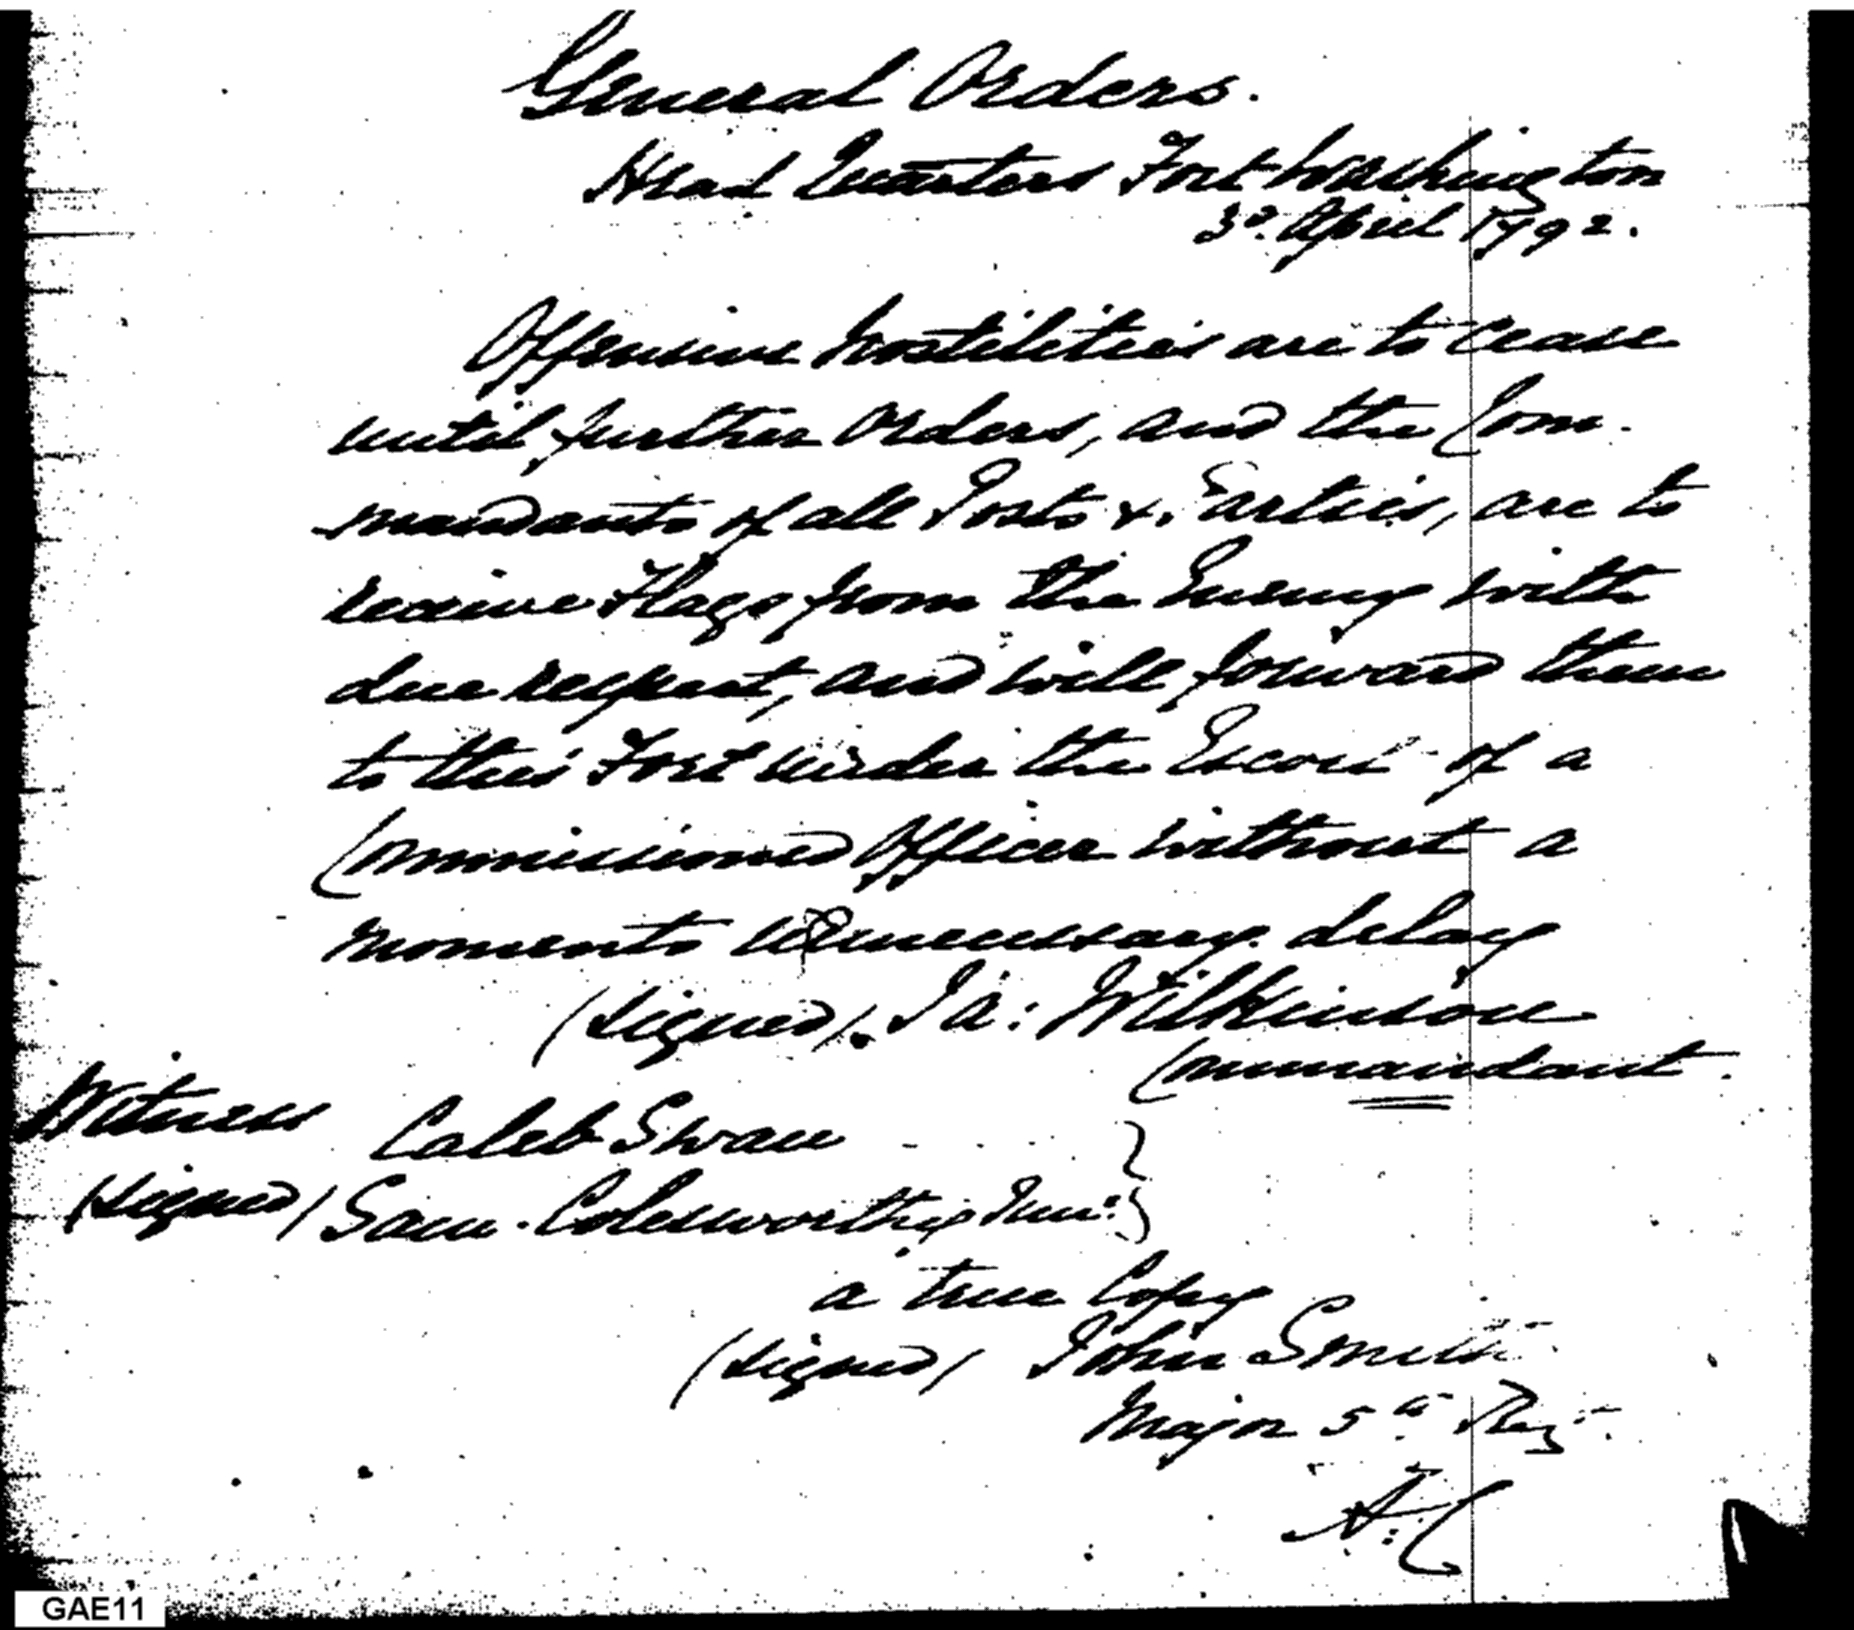 General Orders.
Head Quarters Fort Washington
3d. April 1792.
Offensive hostilities are to cease
until further Orders, and the Com-
mandants of all Posts &. Parties, are to
receive Flags from the Enemy with
due respect, and will forward them
to this Fort under the Escort of a
Commissioned Officer without a
moments unnecessary delay
(signed). Ja: Wilkinson
Commandant.
Witness Caleb Swan
(signed) Sam. Colesworthy Jun:
a true Copy
(signed) John Smith
Major 5th Regt.
A:C
GAE11